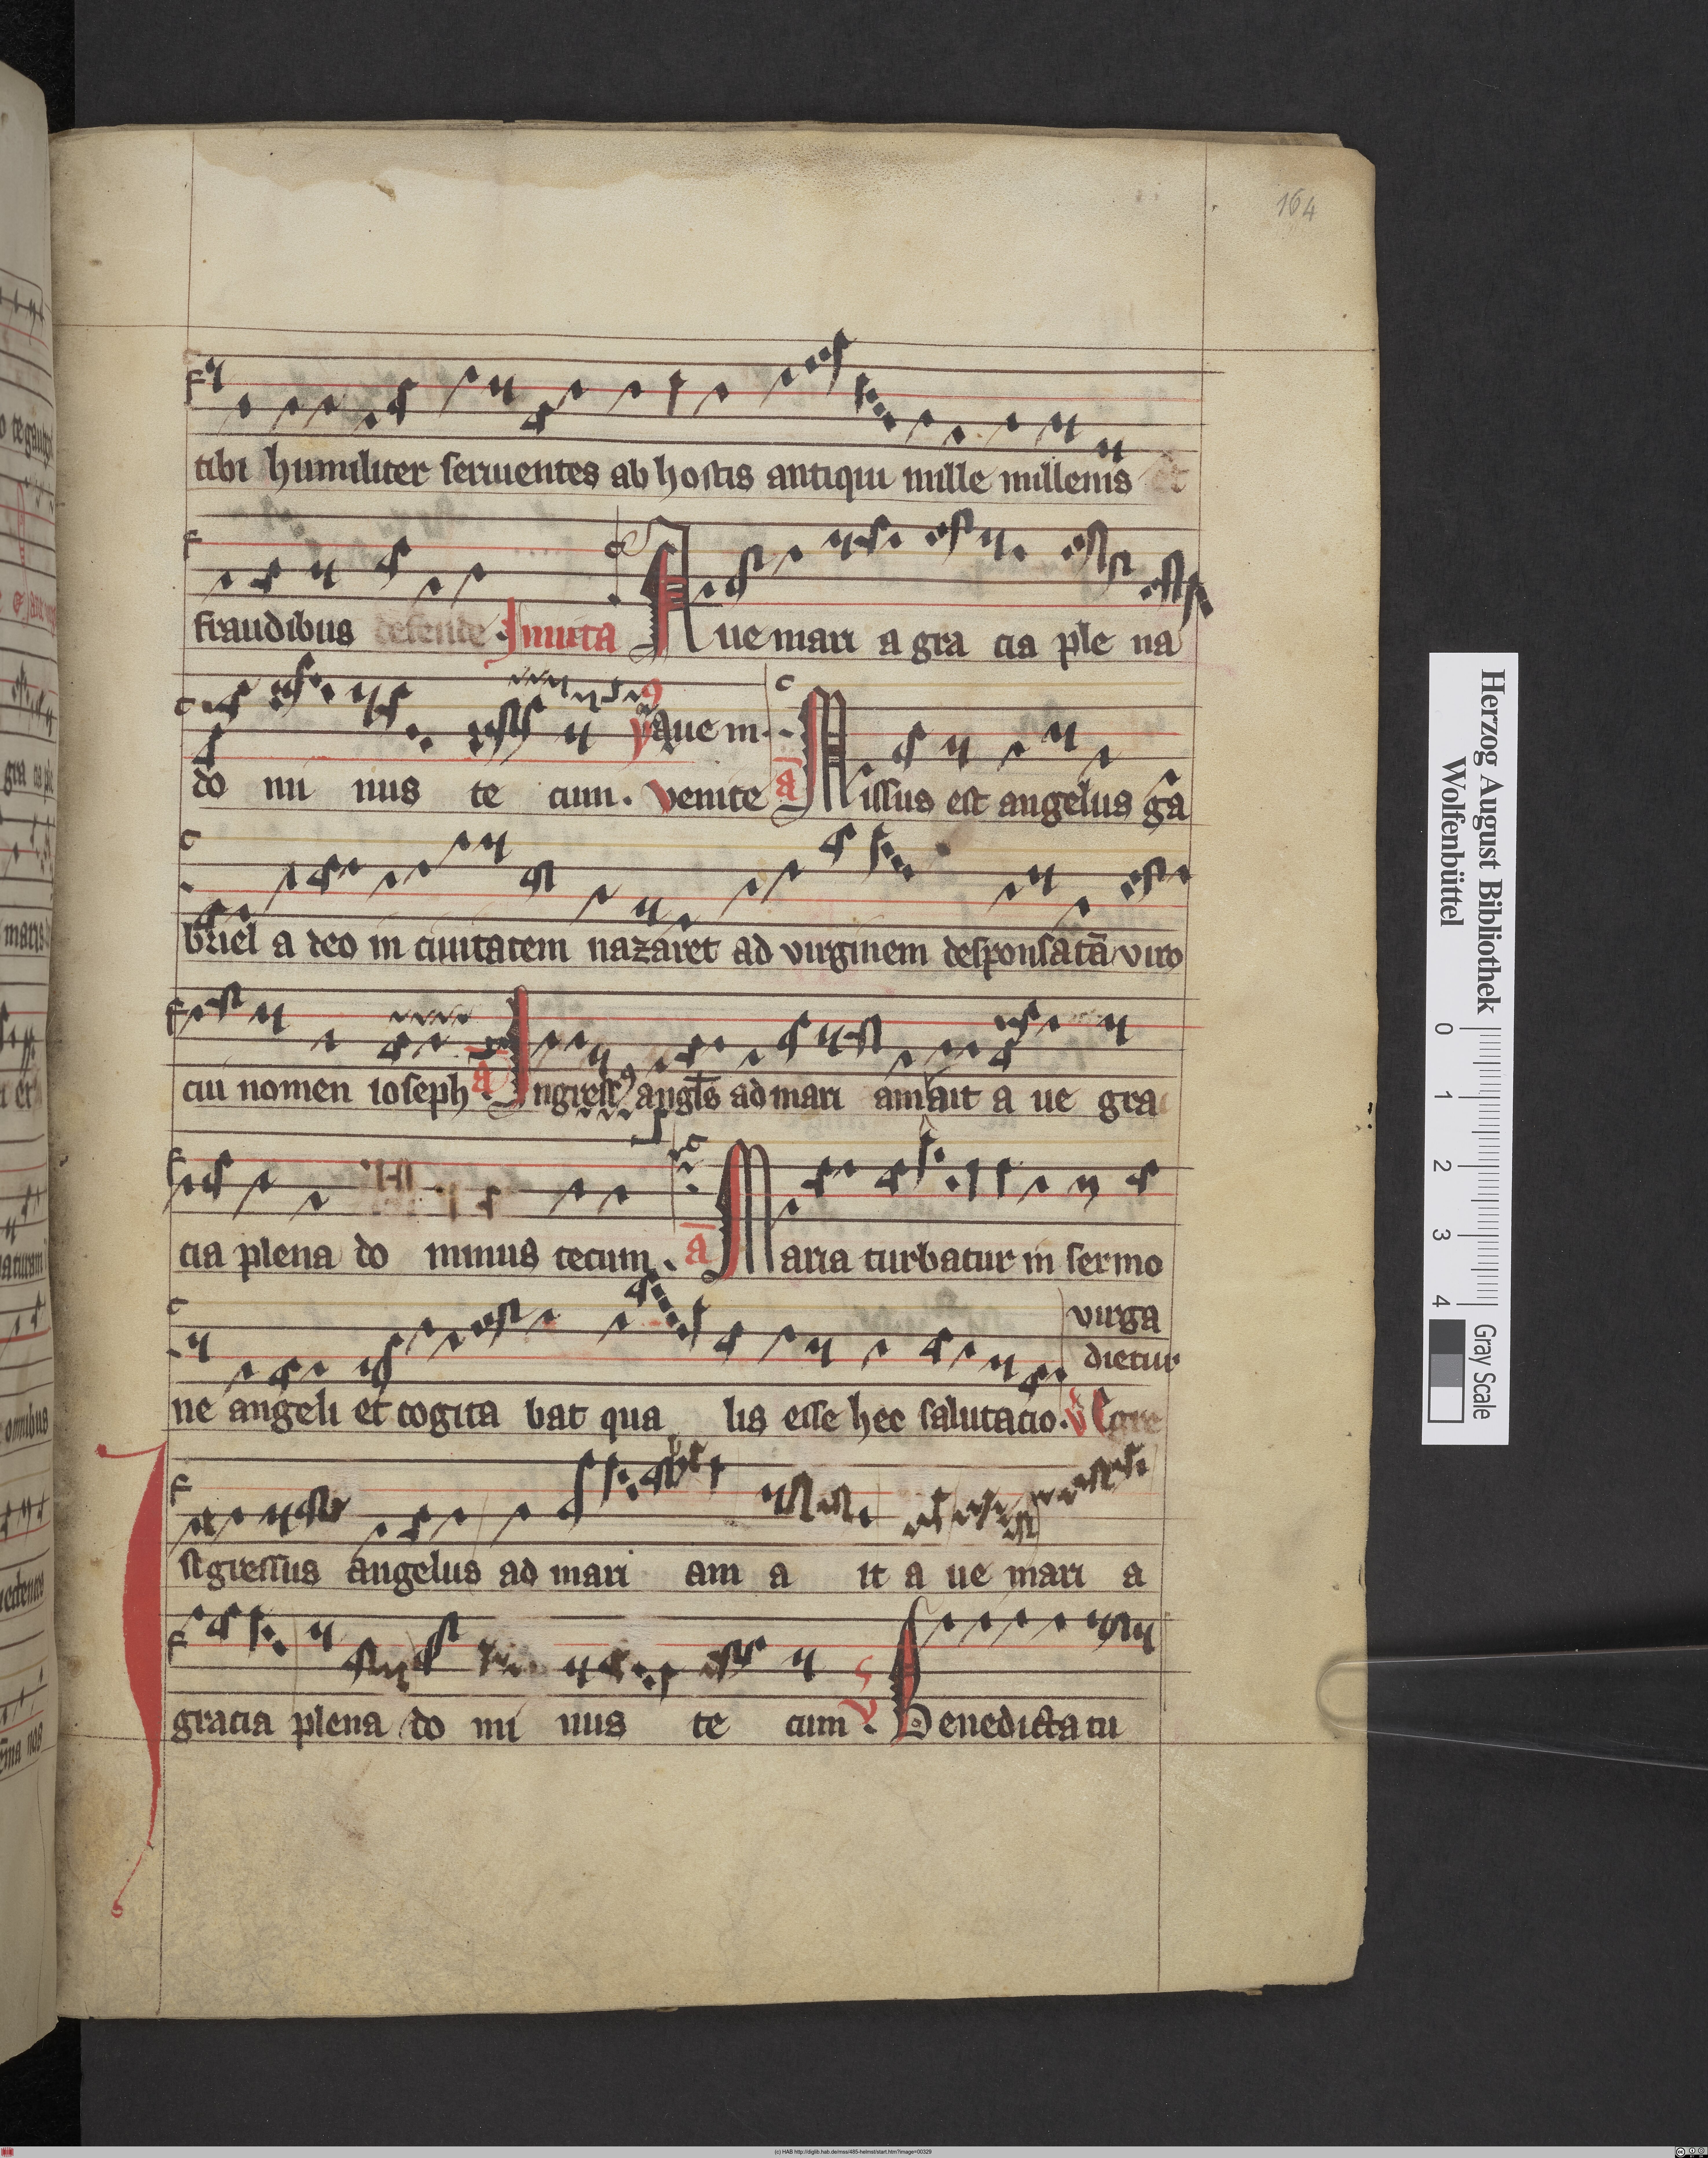 164
tibi humiliter seruientes ab hostis antiqui mille millenis et
fraudibus defende. Inuita Aue mari a gra cia ple na
do mi nus te cum. Venite a Missus est angelus ga
Aue m.
briel a deo in ciuitatem nazaret ad virginem desponsatā viro
cui nomen ioseph. a Ingress9 angls ad mari am ait a ue gra
cia plena do minus tecum. a Maria turbatur in sermo
ne angeli et cogita bat qua lis esse hec salutacio. V Egre
virga
dietur
Ingressus angelus ad mari am a it a ue mari a
gracia plena do mi nus te cum. V Benedicta tu
Herzog August Bibliothek
Wolfenbüttel
0 1 2 3 4
Gray Scale
(c) HAB http://diglib.hab.de/mss/485-helmst/start.htm?image=00329